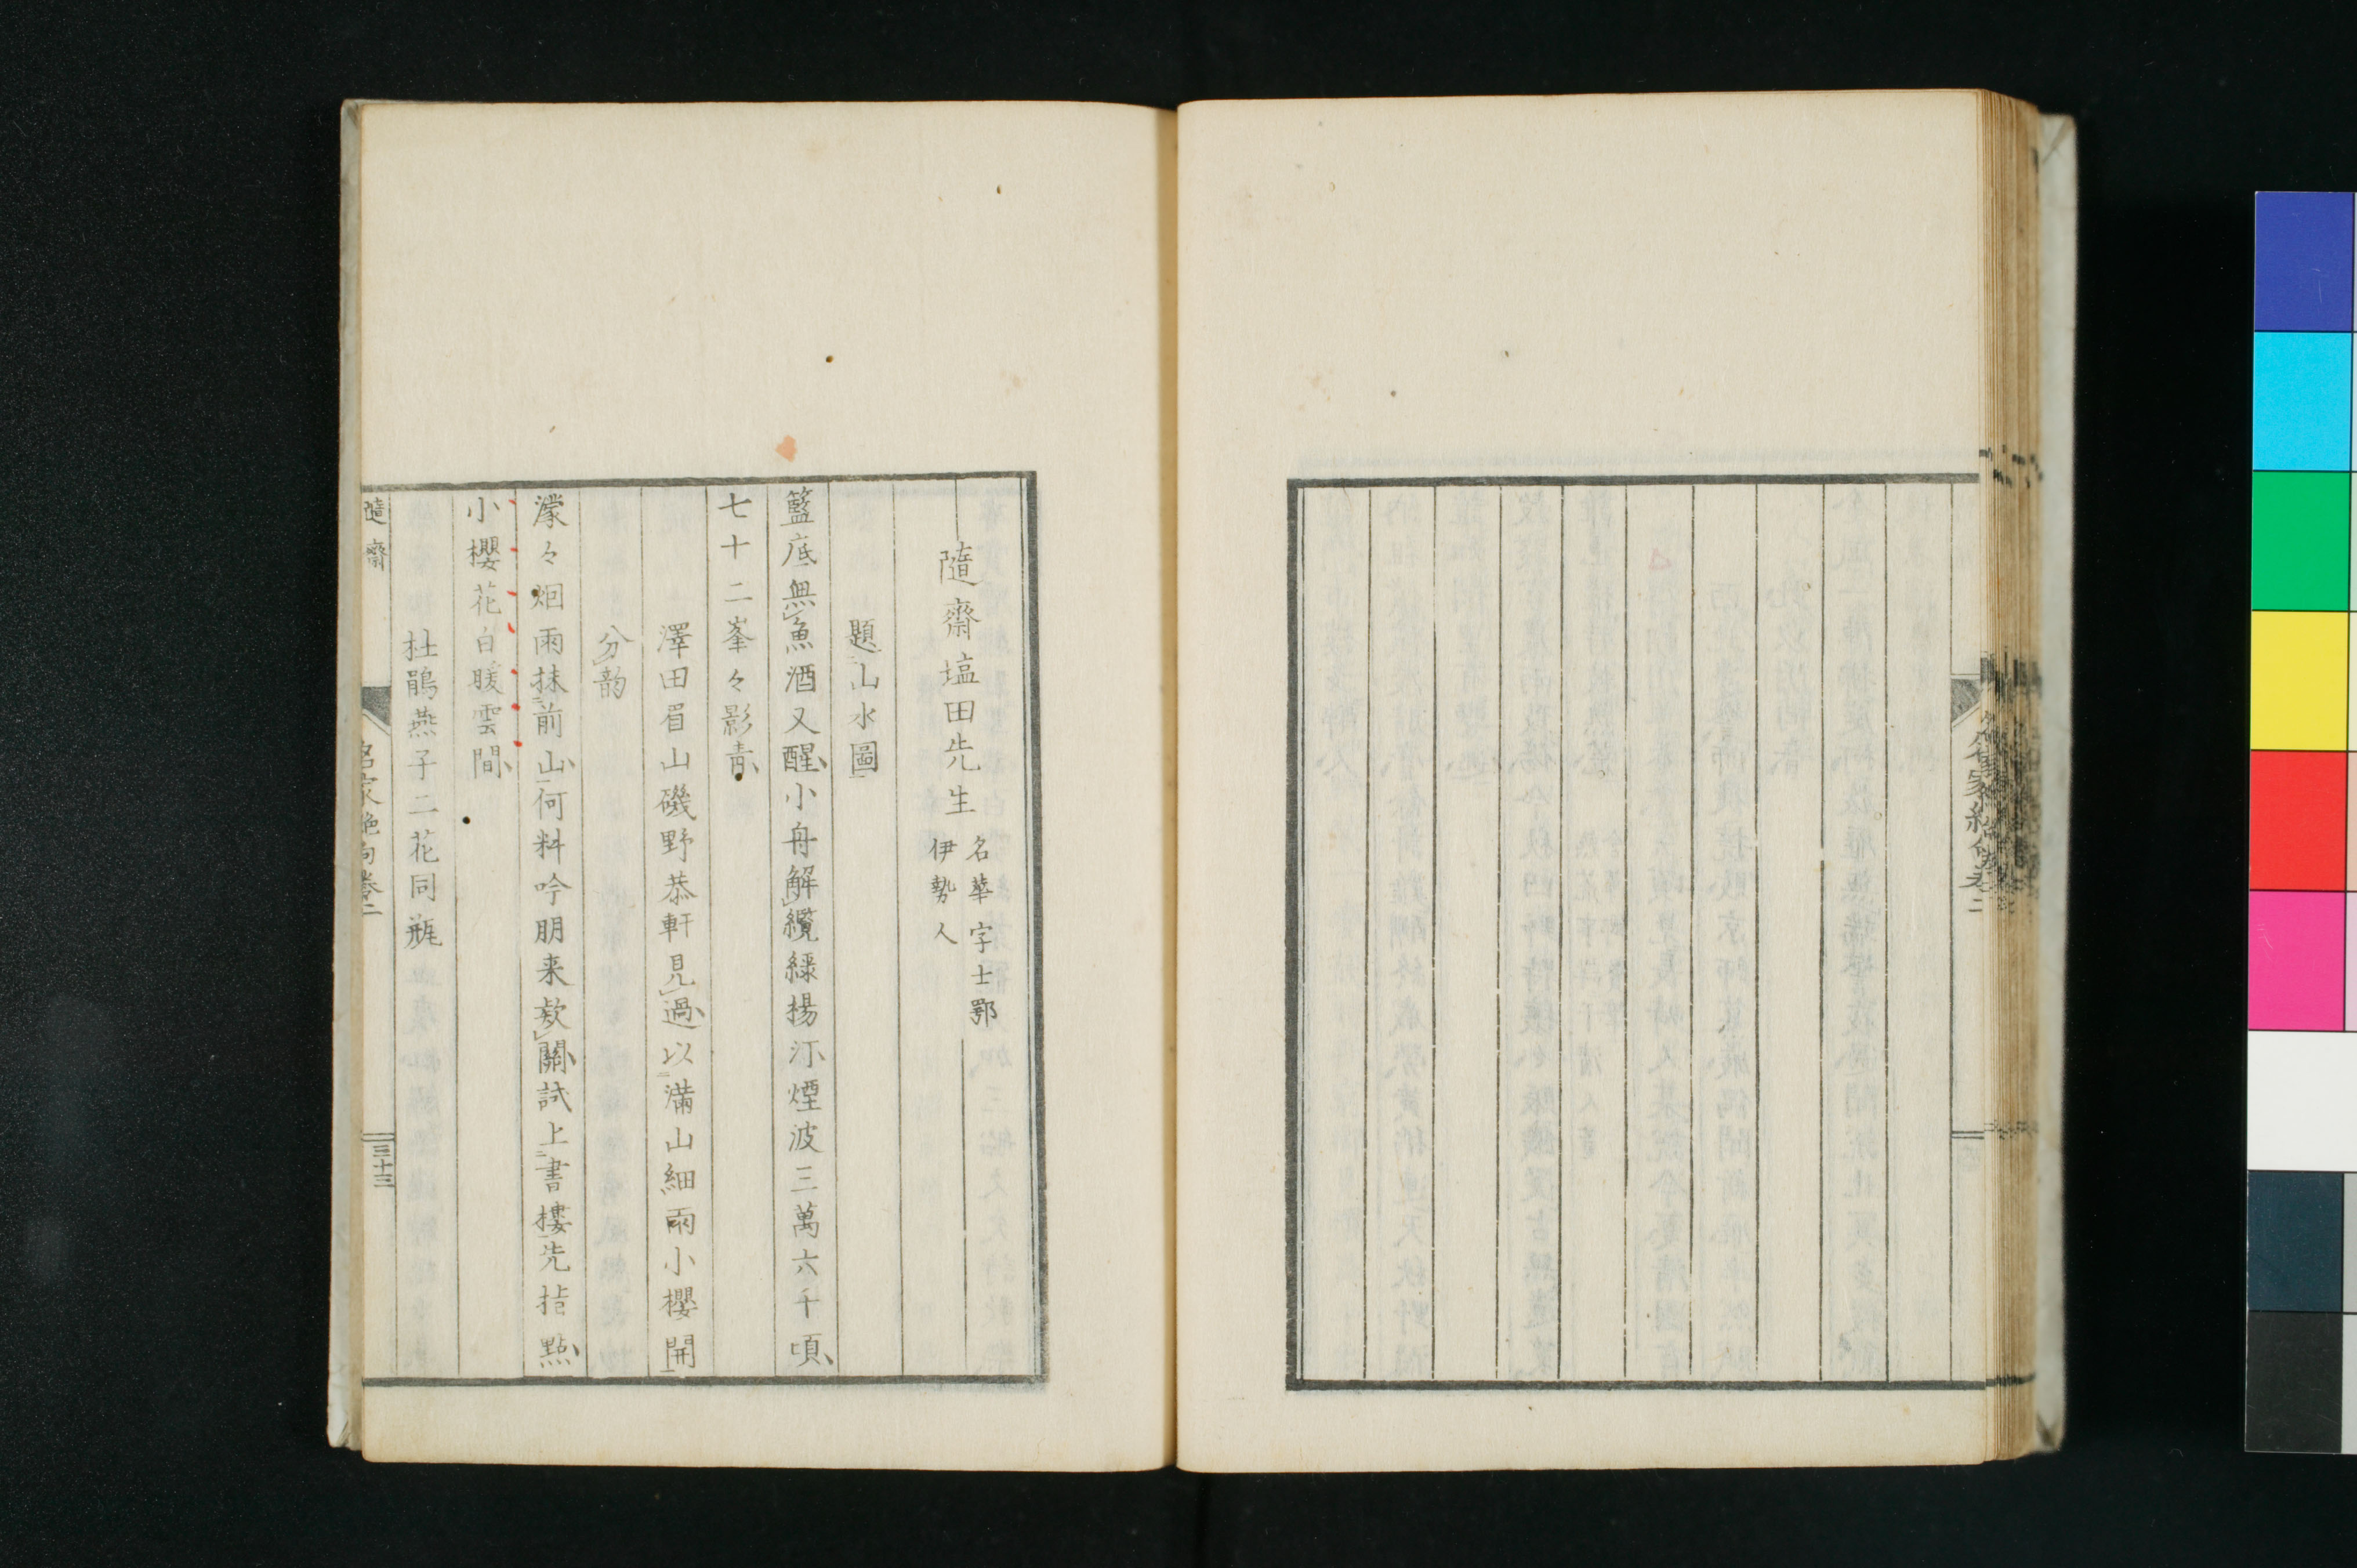 名家絶句卷二
隨齋塩田先生
名華字士鄂
伊勢人
題山水圖
籃底無魚酒又醒小舟解纜綠楊汀煙波三萬六千頃
七十二峯々影青
澤田眉山磯野恭軒見過以滿山細雨小櫻開
分韵
濛々烟雨抹前山何料吟朋来欵關試上書樓先指點
小櫻花白暖雲間
杜鵑燕子二花同瓶
隨齋
名家絶句卷二
三十三